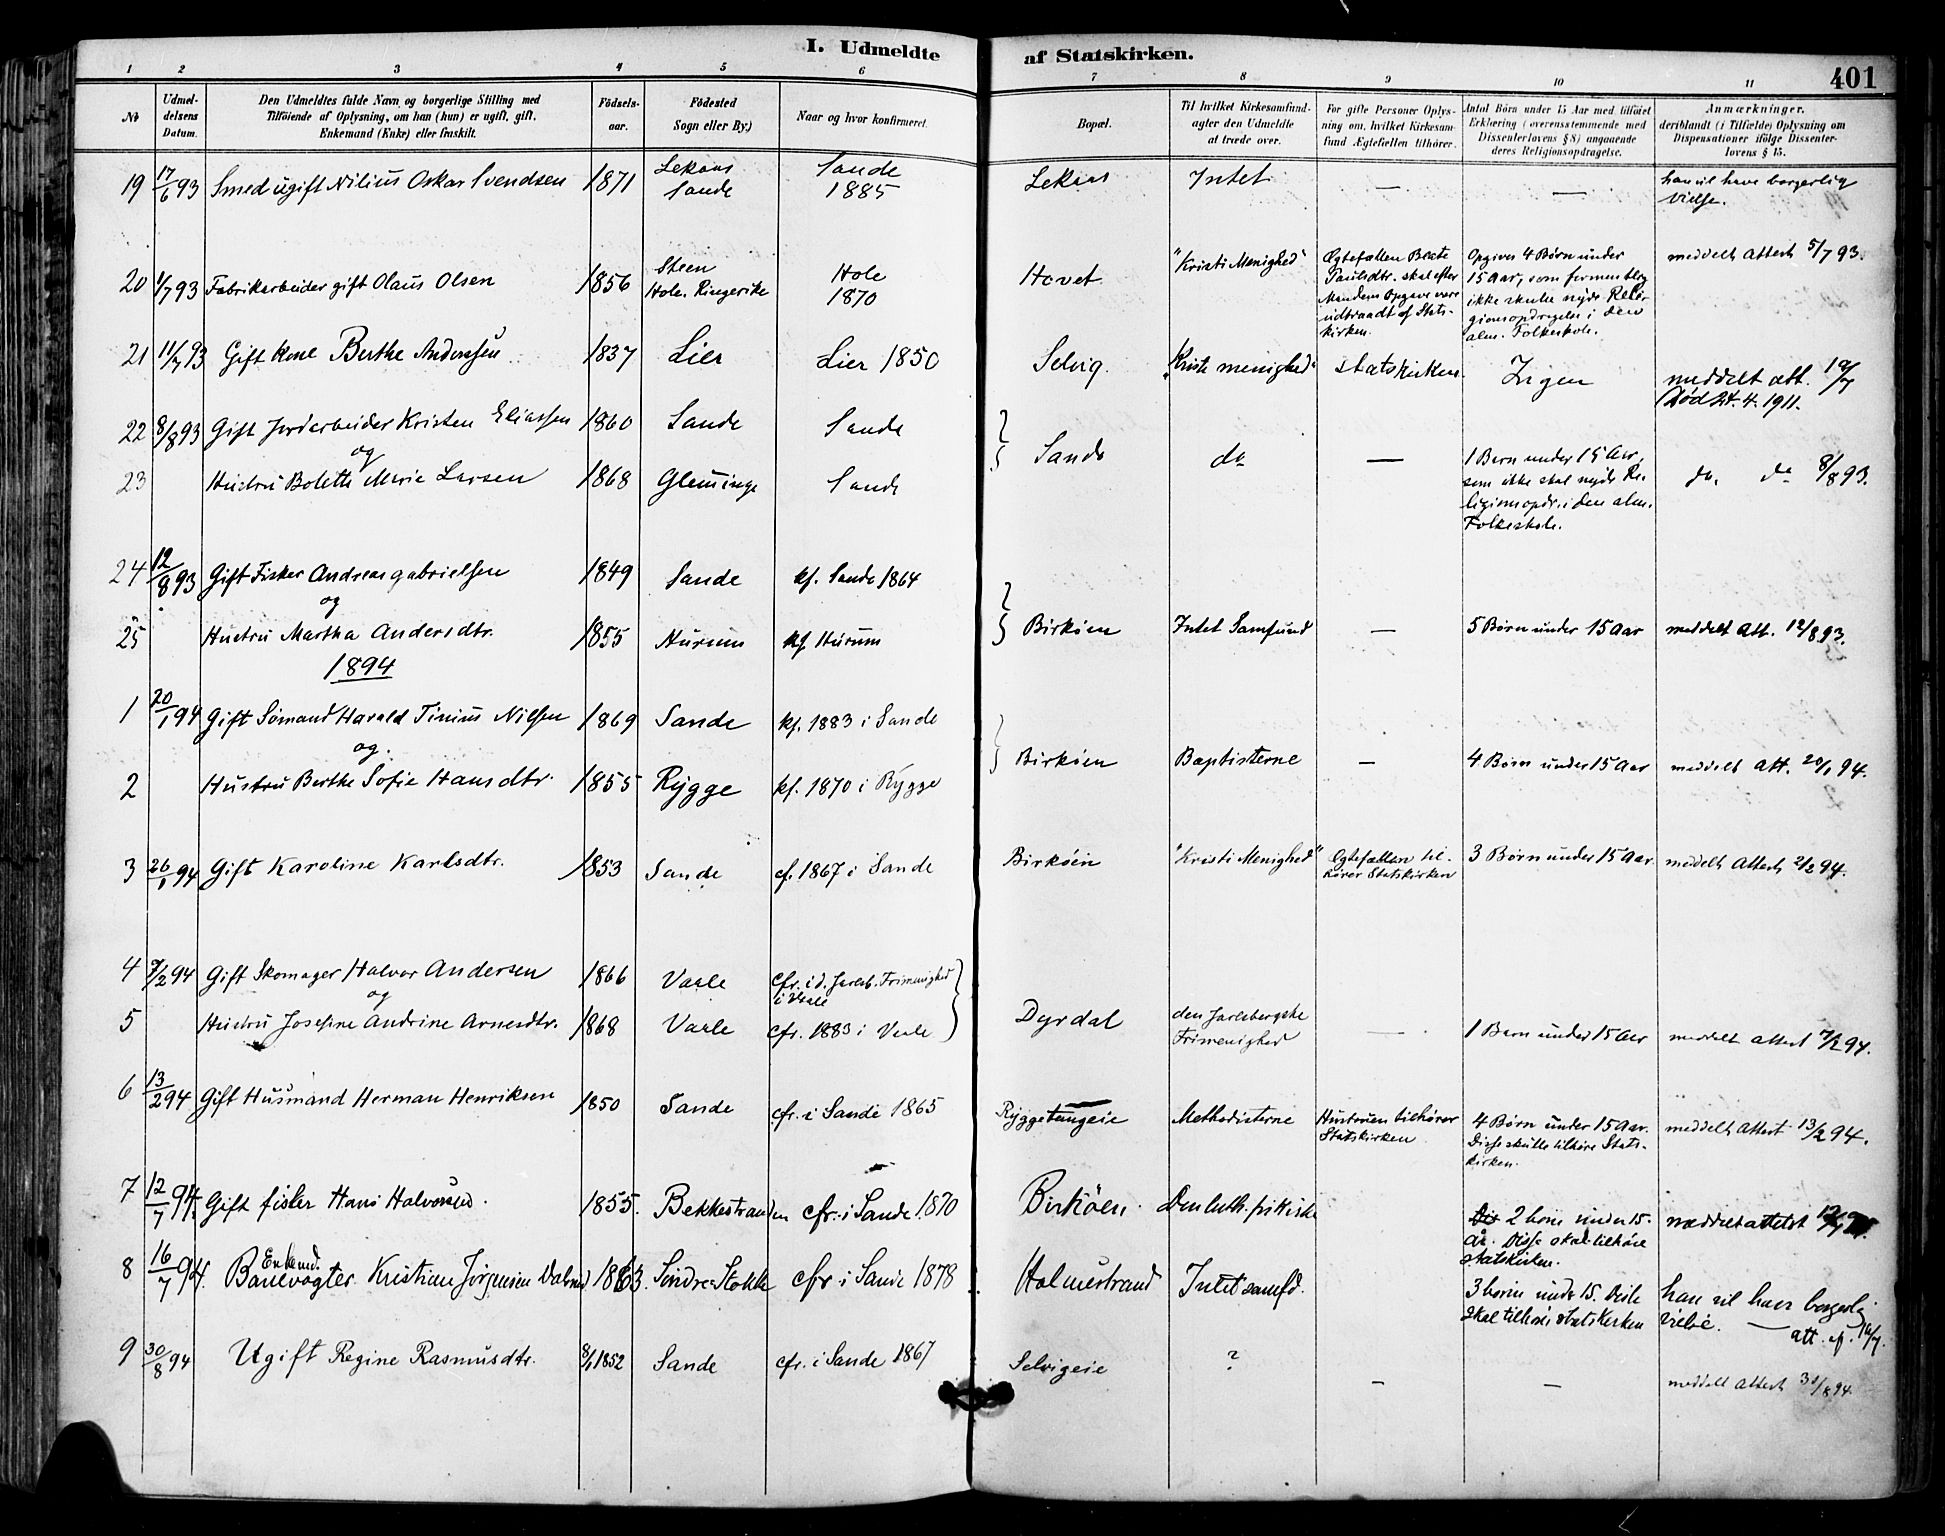 I. Udmeldte af Statskirken.
401
1 2 3 4 5 6 7 8 9 10 11
No
Udmeldelsens Datum.
Den Udmeldtes fulde Navn og borgerlige Stilling med Tilføiende af Oplysning, om han (hun) er ugift, gift, Enkemand (Enke) eller fraskilt.
Fødselsaar.
Fødested Sogn eller By.)
Naar og hvor konfirmeret.
Bopæl.
Til hvilket Kirkesamfund agter den Udmeldte at træde over.
For gifte Personer Oplysning om, hvilket Kirkesamfund Ægtefællen tilhører.
Antal Børn under 15 Aar med tilføiet Erklæring (overensstemmende med Dissenterlovens § 8) angaaende deres Religionsopdragelse.
Anmærkninger, deriblandt (i Tilfælde) Oplysning om Dispensationer ifølge Dissenterlovens § 15.
19 17/6 93 Smed ugift Nilius Oskar Svendsen 1871 Lekaas Sande Sande 1885 Lekaas Intet — — han vil have borgerlig Vielse.
20 1/7 93 Fabrikarbeider gift Olaus Olsen 1856 Steen Hole. Ringerike Hole 1870 Hovet "Kristi Menighed" Egtefællen Beate Paulsdtr. skal efter Mandens Opgave være udtraadt af Statskirken. Opgiver 4 Børn under 15 Aar, som ikke skulle nyde Religionsopdragelse i den alm. Folkeskole. meddelt Attest 5/7 93.
21 11/7 93 Gift Kone Berthe Anderssen 1837 Lier Lier 1850 Selvig. "Kristi menighed" Statskirken. Ingen meddelt att. 12/7 Død 24.4.1911.
22 8/8 93 Gift Jordarbeider Kristen Eliassen 1860 Sande Sande
og
Sande do — 1 Barn under 15 Aar, som ikke skal nyde Religionsopdr. i den alm. Folkeskole. do. do 8/8 93.
23 Hustru Bolette Marie Larsen 1868 Glemminge Sande
24 12/8 93 Gift Fisker Andreas Gabrielsen 1849 Sande kf. Sande 1864
og
25 Hustru Martha Andersdtr. 1855 Hurum kf Hurum Birköen Intet Samfund — 5 Børn under 15 Aar meddelt Att. 12/8 93.
1894
1 20/1 94 Gift Sömand Harald Tinius Nilsen 1869 Sande kf. 1883 i Sande
og.
Birköen Baptisterne — 4 Børn under 15 Aar meddelt Att. 20/1 94.
2 Hustru Berthe Sofie Hansdtr. 1855 Rygge kf. 1870 i Rygge
3 26/1 94 Gift Karoline Karlsdtr. 1853 Sande cf. 1867 i Sande Birköen "Kristi Menighed" Egtefællen tilhører Statskirken 3 Børn under 15 Aar. meddelt Attest 2/2 94.
4 7/2 94 Gift Skomager Halvor Andersen 1866 Vaale Cfr. i d. Jarlsb. Frimenighed i Vaale
og
5 Hustru Josefine Andrine Arnesdtr. 1868 Vaale cfr. 1883 i Vaale Dyrdal den Jarlsbergske Frimenighed — 1 Barn under 15 Aar meddelt Attest 7/2 94.
6 13/2 94 Gift Husmand Herman Henriksen 1850 Sande cfr. i Sande 1865 Ryggetangeie Methodisterne Hustruen tilhører Statskirken 4 Børn under 15 Aar. Disse skulle tilhøre Statskirken. meddelt Attest 13/2 94.
7 12/7 94. Gift fisker Hans Halvorsen. 1855. Bekkestranden cfr. i Sande 1870 Birköen. Den luth. frikirke 2 børn under 15. År. Disse skal tilhøre statskirken. meddelt attest
8 16/7 94. Enkemd. Banevogter Kristian Jörgensen 1863. Söndre Stokke cfr. i Sande 1878 Holmestrand Intet samfd. 3 børn under 15. Disse skal tilhøre statskirken han vil have borgerlig vielse. — att.
9 30/8 94 Ugift Regine Rasmusdtr. 8/1 1852 Sande cfr. i Sande 1867 Selvigeie ? — — meddelt Attest 31/8 94